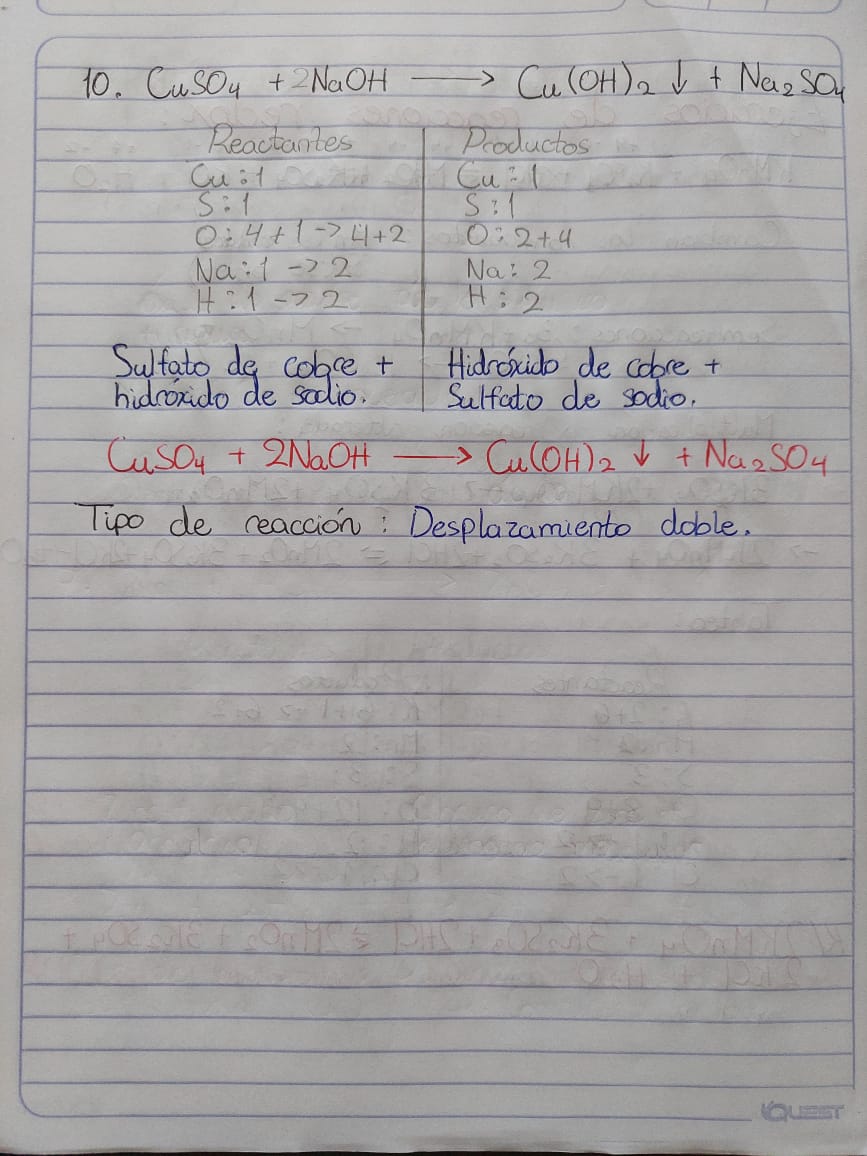 10. CuSO4 + 2NaOH ⟶ Cu(OH)2 ↓ + Na2SO4
Reactantes | Productos
Cu: 1 | Cu: 1
S: 1 | S: 1
O: 4+1 -> 4+2 | O: 2+4
Na: 1 -> 2 | Na: 2
H: 1 -> 2 | H: 2
Sulfato de cobre + | Hidróxido de cobre +
hidróxido de sodio. | Sulfato de sodio.
CuSO4 + 2NaOH ⟶ Cu(OH)2 ↓ + Na2SO4
Tipo de reacción: Desplazamiento doble.
QUEST